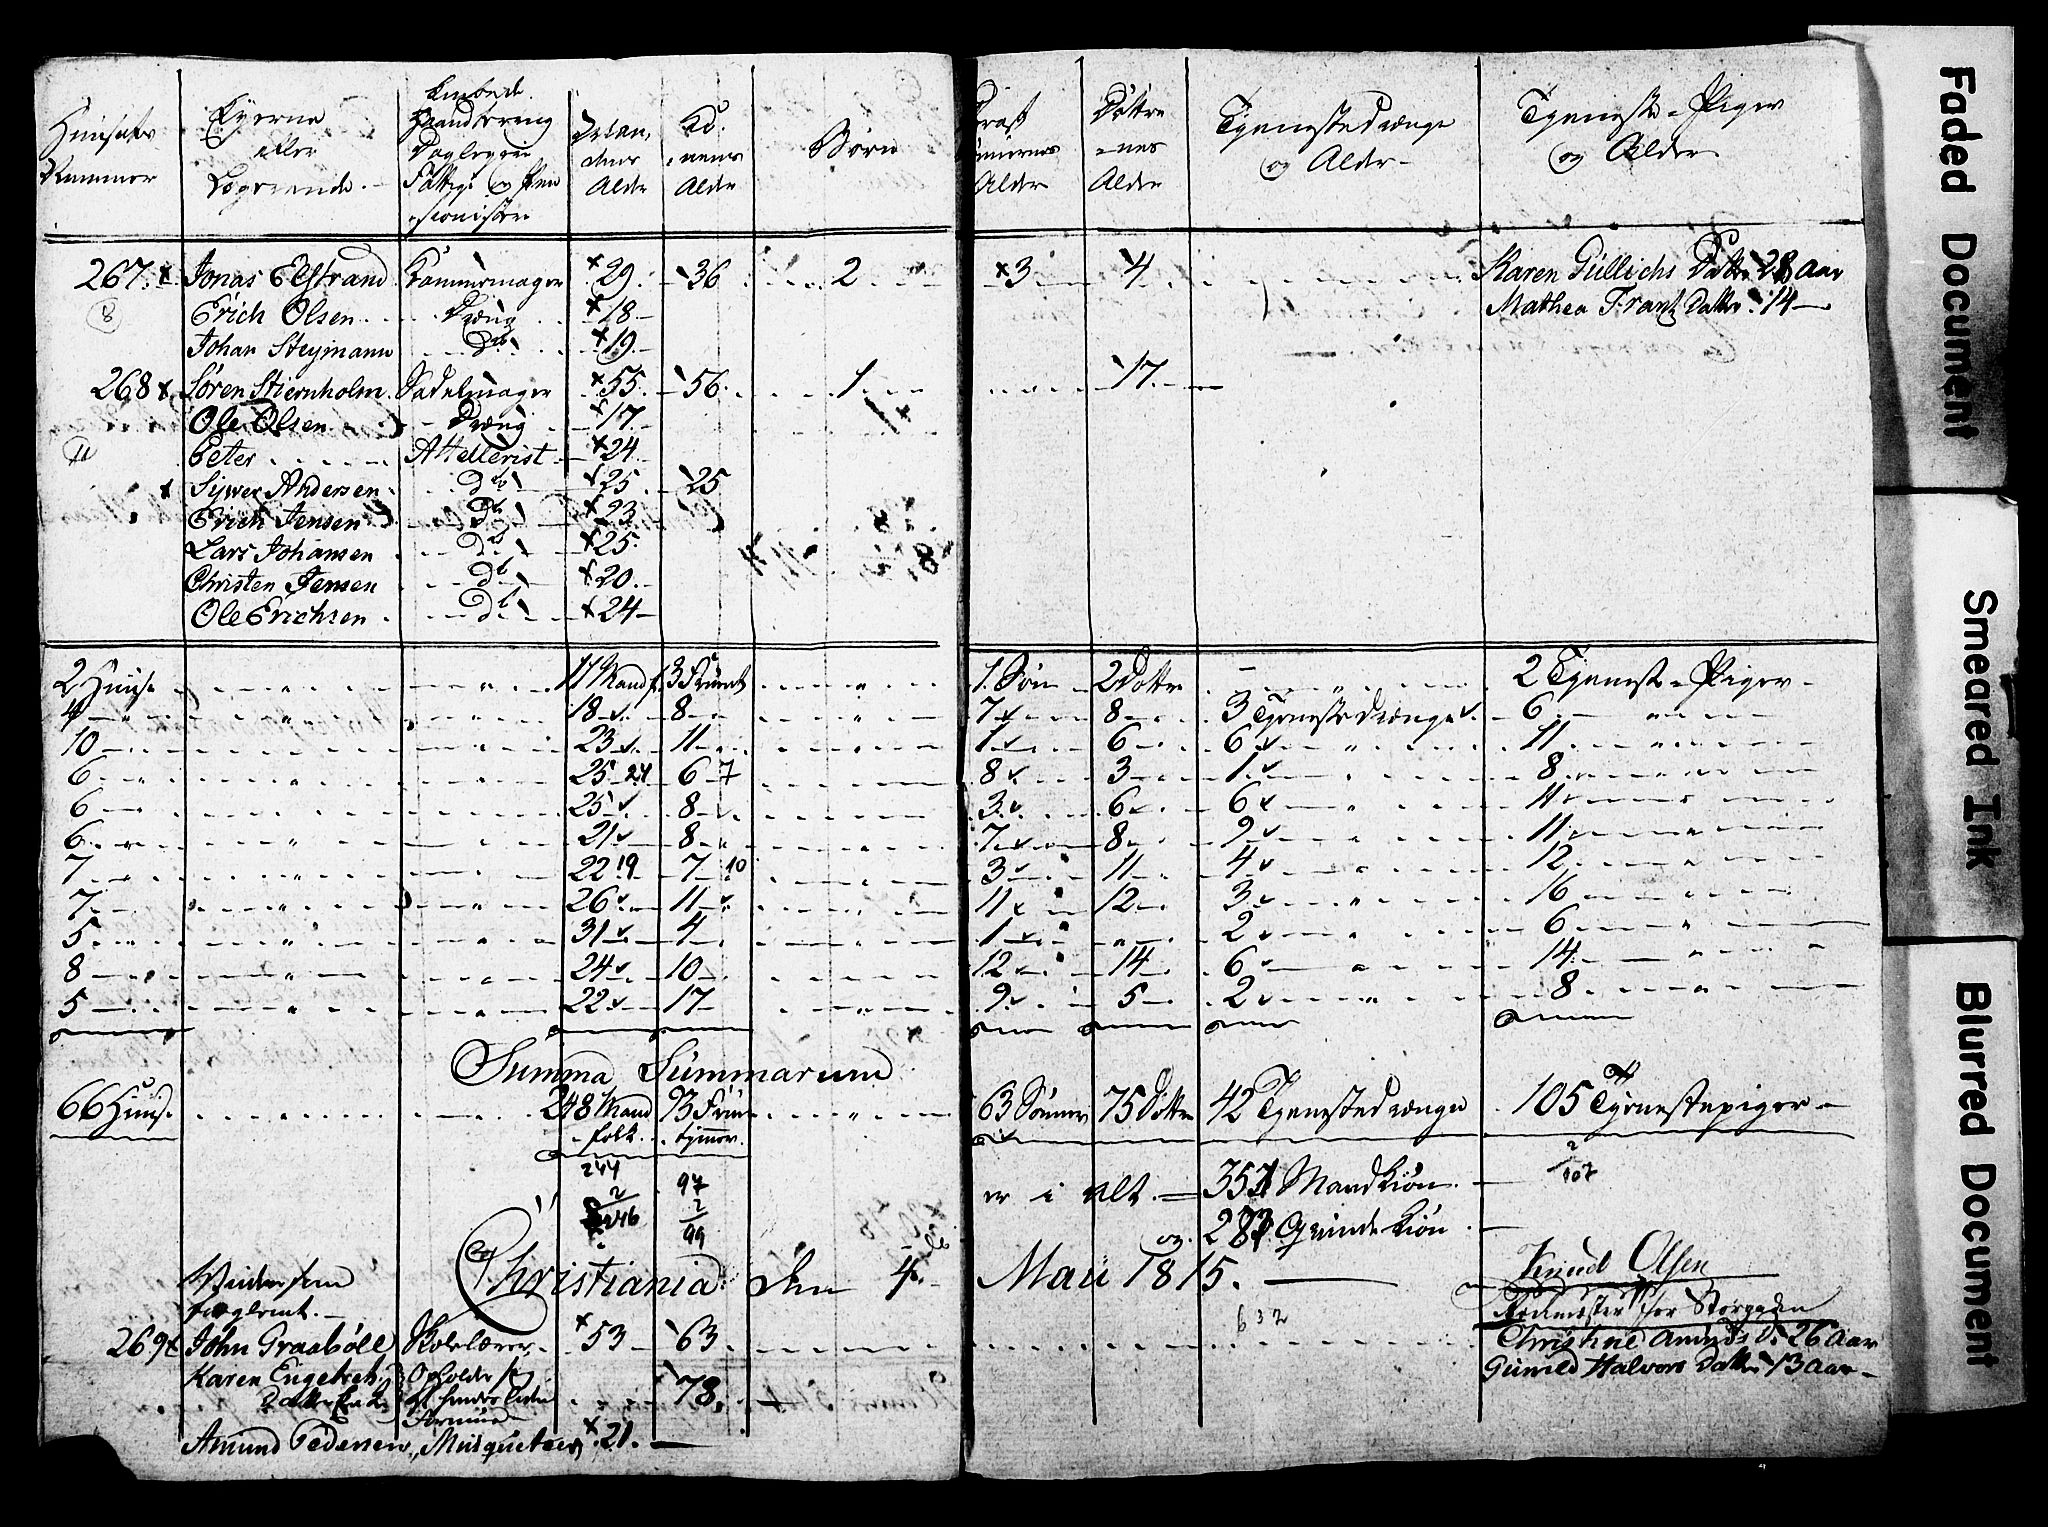 Huusets Nummer
Eyerne eller Logerende
Embede Haandtering Dagleyere Fattige og Pensionister
Alder
Konernes Alder
Børn
Alder
Døttrenes Alder
Tjenestedrænge og Alder
Tjeneste-Piger og Alder
267. Jonas Elstrand Kammermager 29. 36 2 3 4 Karen Gullichs Dattr 28 Aar
8 Erich Olsen Dreng 18 Mathea Frantz Dattr. 14
Johan Steymann Do 19
268 Søren Stiernholm Sadelmager 55. 56. 1 17.
Ole Olsen Dreng 17.
11 Peter Attellerist 24
Siwer Andersen Do 25. 25
Erich Jensen Do 23
Lars Johansen Do 25.
Christen Jensen Do 20.
Ole Erichsen Do 24
2 Huuse 11 Mandf. 3 Fruent 1. Søn 2 Dottre 2 Tjeneste-Piger
4 18 8 7 8 3 Tjenestedrænge 6
10 23 11 1 6 6 11
6 25 24 6 7 8 3 1 8
6 25 8 3 6 6 11
6 21 8 7 8 9 11
7 22 19 7 10 3 11 4 12
7 26 11 11 12 3 16
5 31 4 1 2 6
8 24 10 12 14 6 14
5 22 17 9 5 2 8
Summa Summarum
66 Huus. 248 Mand folk 93 Fruen tjmer. 63 Sønner 75 Dottre 42 Tjenestedrænge 105 Tjenestepiger
244 97 er i alt 353 Mandkiøn 2
2 2 107
246 99 og 281 Qvindekiøn
Christiania den 4. Maii 1815. Knud Olsen
632
Rodemester for Storgaden
269 John Graabøll Skolelærer 53 63 Christine Amunds D. 26 Aar
Karen Engebret 78. Gunild Halvors Datter 13 Aar
Amund Pedersen, Musqueteer 21.
Faded Document
Smeared Ink
Blurred Document